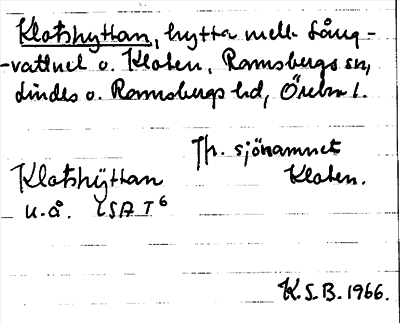 Klotshyttan, hytta mell. Lång-
-vattnet o. Kloten, Ramsbergs sn,
Lindes o. Ramsbergs hd, Örebro l.
Th. sjönamnet
Kloten.
Klotshÿttan
u.å. LSA T6
K.S.B. 1966.